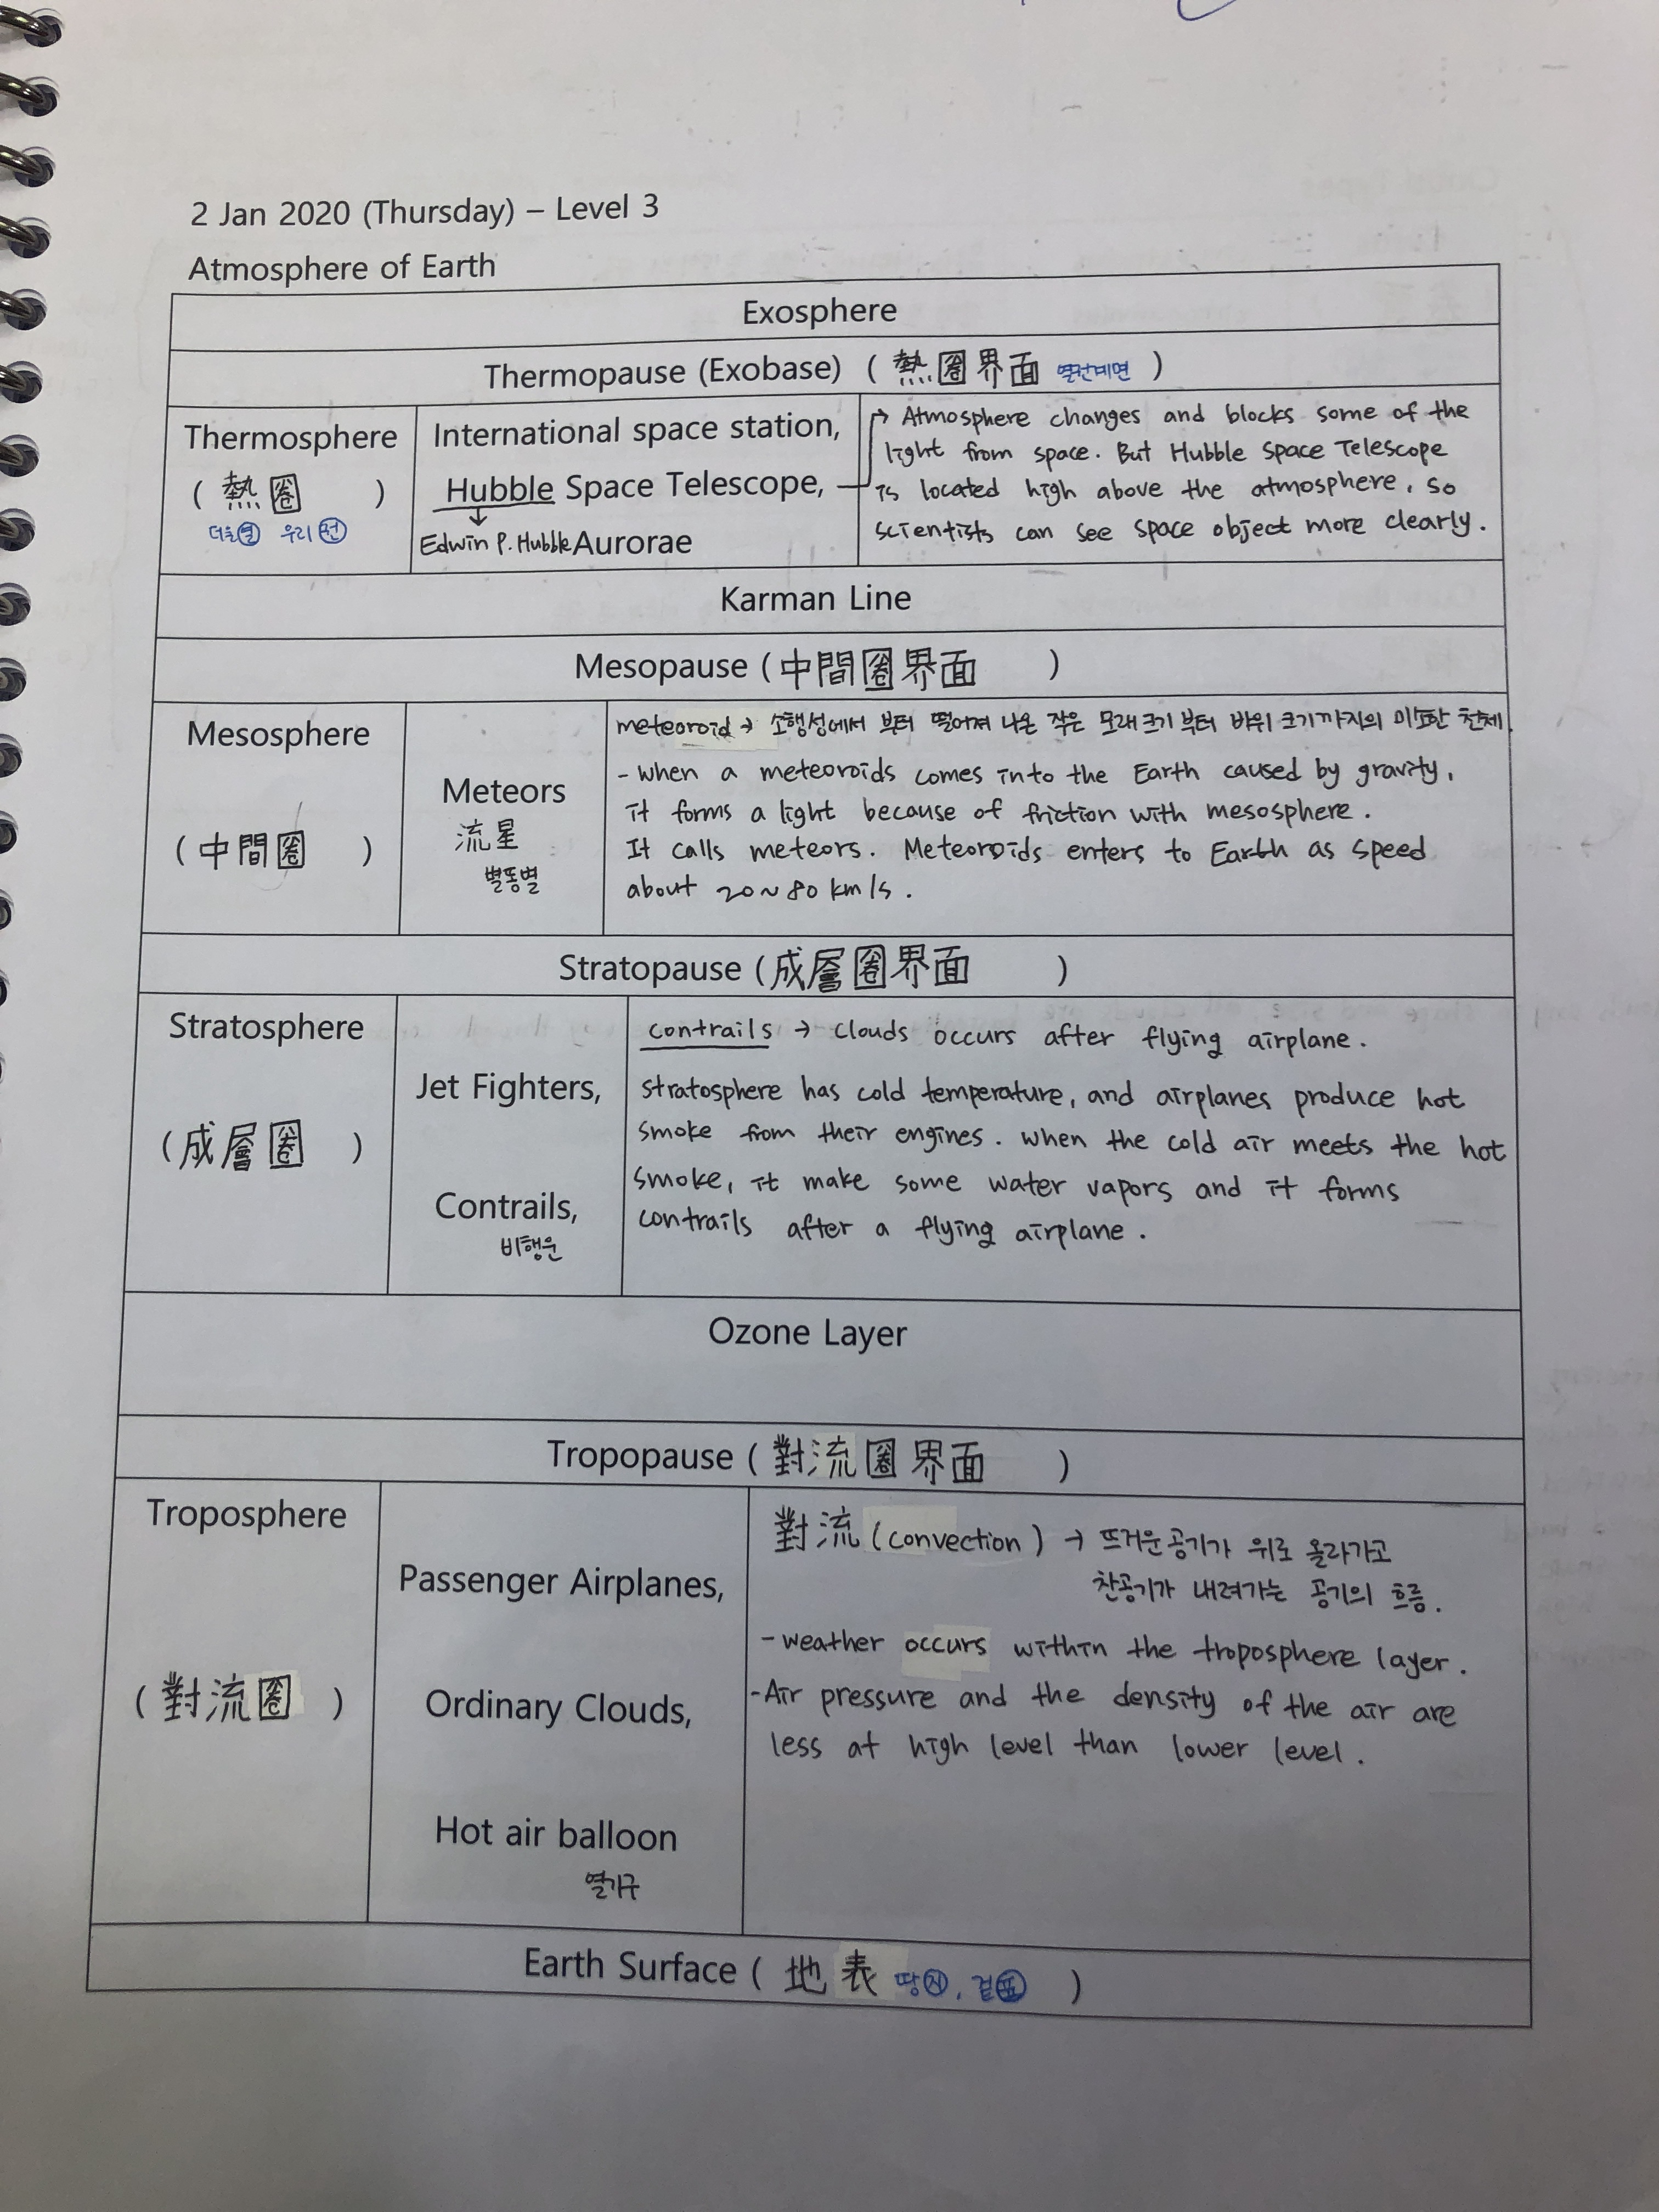 2 Jan 2020 (Thursday) – Level 3
Atmosphere of Earth
Exosphere
Thermopause (Exobase) ( 熱圈界面 열권계면 )
Thermosphere
( 熱圈 )
더울열 우리권
International space station,
Hubble Space Telescope,
Edwin P. Hubble Aurorae
→ Atmosphere changes and blocks some of the
light from space. But Hubble Space Telescope
is located high above the atmosphere, so
scientists can see space object more clearly.
Karman Line
Mesopause (中間圈界面 )
Mesosphere
(中間圈 )
Meteors
流星
별똥별
meteoroid → 소행성에서 부터 떨어져 나온 작은 모래크기 부터 바위 크기까지의 미소한 천체.
- When a meteoroids comes into the Earth caused by gravity,
it forms a light because of friction with mesosphere.
It calls meteors. Meteoroids enters to Earth as speed
about 20~80 km/s.
Stratopause (成層圈界面 )
Stratosphere
(成層圈 )
Jet Fighters,
Contrails,
비행운
contrails → clouds occurs after flying airplane.
Stratosphere has cold temperature, and airplanes produce hot
smoke from their engines. When the cold air meets the hot
smoke, it make some water vapors and it forms
contrails after a flying airplane.
Ozone Layer
Tropopause (對流圈界面 )
Troposphere
(對流圈 )
Passenger Airplanes,
Ordinary Clouds,
Hot air balloon
열기구
對流 (convection) → 뜨거운공기가 위로 올라가고
찬공기가 내려가는 공기의 흐름.
- weather occurs within the troposphere layer.
- Air pressure and the density of the air are
less at high level than lower level.
Earth Surface ( 地表 땅지, 겉표 )